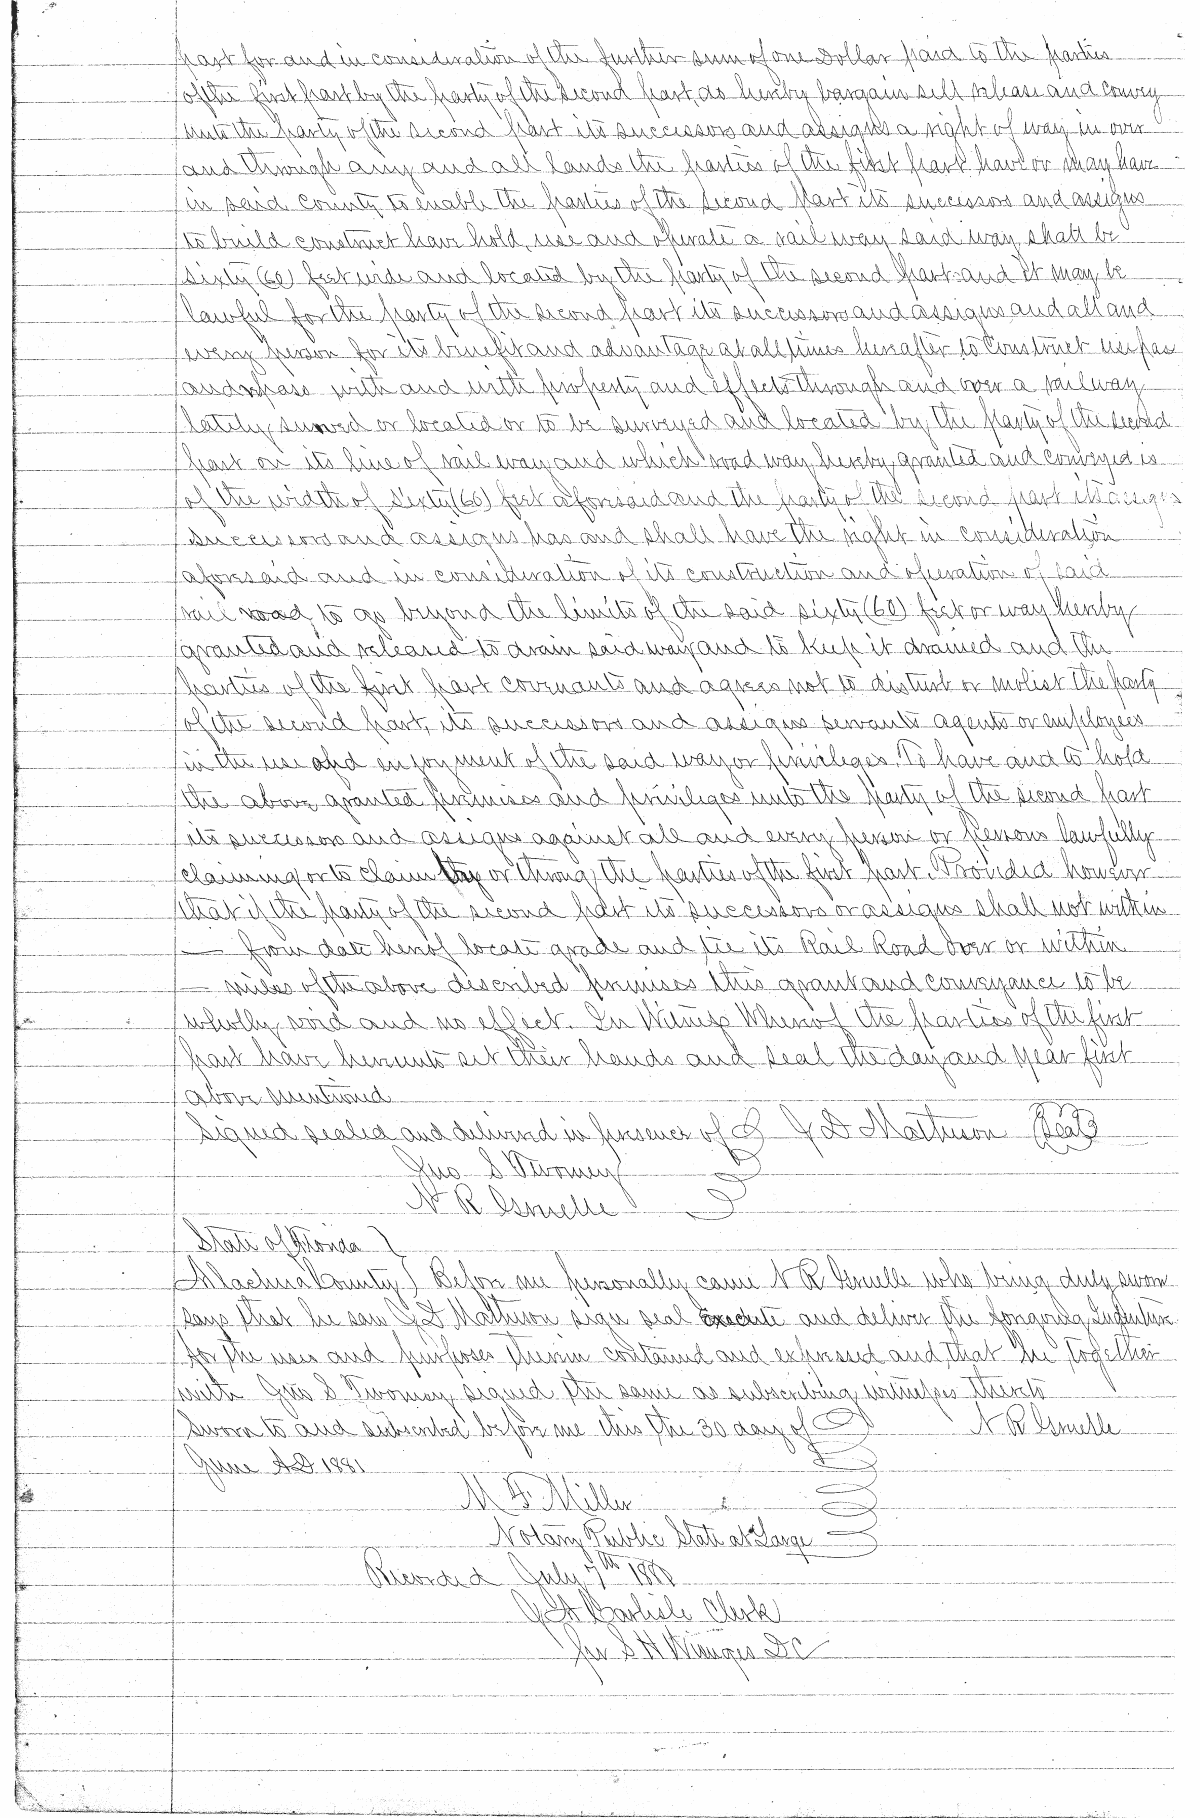 part for and in consideration of the further sum of one Dollar paid to the parties
of the first part by the party of the second part, do hereby bargain sell release and convey
unto the party of the second part its successors and assigns a right of way in over
and through any and all lands the parties of the first part have or may have
in said County to enable the parties of the second part its successors and assigns
to build construct have hold, use and operate a rail way said way, shall be
Sixty (60) feet wide and located by the party of the second part and it may be
lawful for the party of the second part its successors and assigns and all and
every person for its benefit and advantage at all times hereafter to Construct use pass
and repass with and with property and effects through and over a railway
lately surved or located or to be surveyed and located by the party of the second
part on its line of rail way and which road way, hereby, granted and conveyed is
of the width of Sixty (60) feet aforesaid and the party of the second part its assigns
successors and assigns has and shall have the right in consideration
aforesaid and in consideration of its construction and operation of said
rail road, to go beyond the limits of the said sixty (60) feet or way hereby
granted and released to drain said way and to keep it drained and the
parties of the first part covenants and agrees not to disturb or molest the party
of the second part, its successors and assigns servants agents or employees
in the use and enjoyment of the said way or privileges. To have and to hold
the above granted premises and privileges unto the party of the second part
its successors and assigns against all and every person or persons lawfully
claiming or to claim by or throug the parties of the first part. Provided however
that if the party of the second part its successors or assigns shall not within
— from date hereof locate grade and tie its Rail Road over or within
— miles of the above described premises this grant and conveyance to be
wholly void and no effect. In Witness Whereof the parties of the first
part have hereunto set their hands and seal the day and year first
above mentioned
Signed sealed and delivered in presence of J D Matheson (Seal)
Jno S Twomey
N R Gruelle
State of Florida
Alachua County Before me personally came N R Gruelle who being duly sworn
says that he saw J D Matheson sign seal Execute and deliver the foregoing Indenture
for the uses and purposes therein contained and expressed and that he together
with Jno S Twomey signed the same as subscribing witnesses thereto
Sworn to and subscribed before me this the 30 day of N R Gruelle
June AD 1881
M F Miller
Notary Public State at Large
Recorded July 7th 1881
J A Carlisle Clerk
per S H Wienges DC